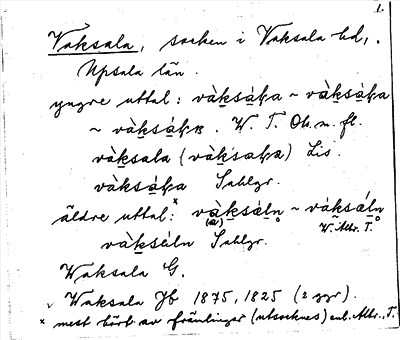 1.
Vaksala, socken i Vaksala hd,.
Upsala län.
yngre uttal: vàksáƚa ~ vàksàƚa
~ vàksáƚɐ. W. T. Oh. m. fl.
vàksala (vàksaƚa) Lis.
vàksáƚa Sahlgr.
äldre uttal:ˣ vàksáln̥ ~ váksáln̥
(a) W. Åtbr. T.
vàksáln Sahlgr.
Waksala G.
Waksala Jb 1875, 1825 (2 ggr).
x mest hört av främlingar (utsocknes) enl. Åtbr., T.